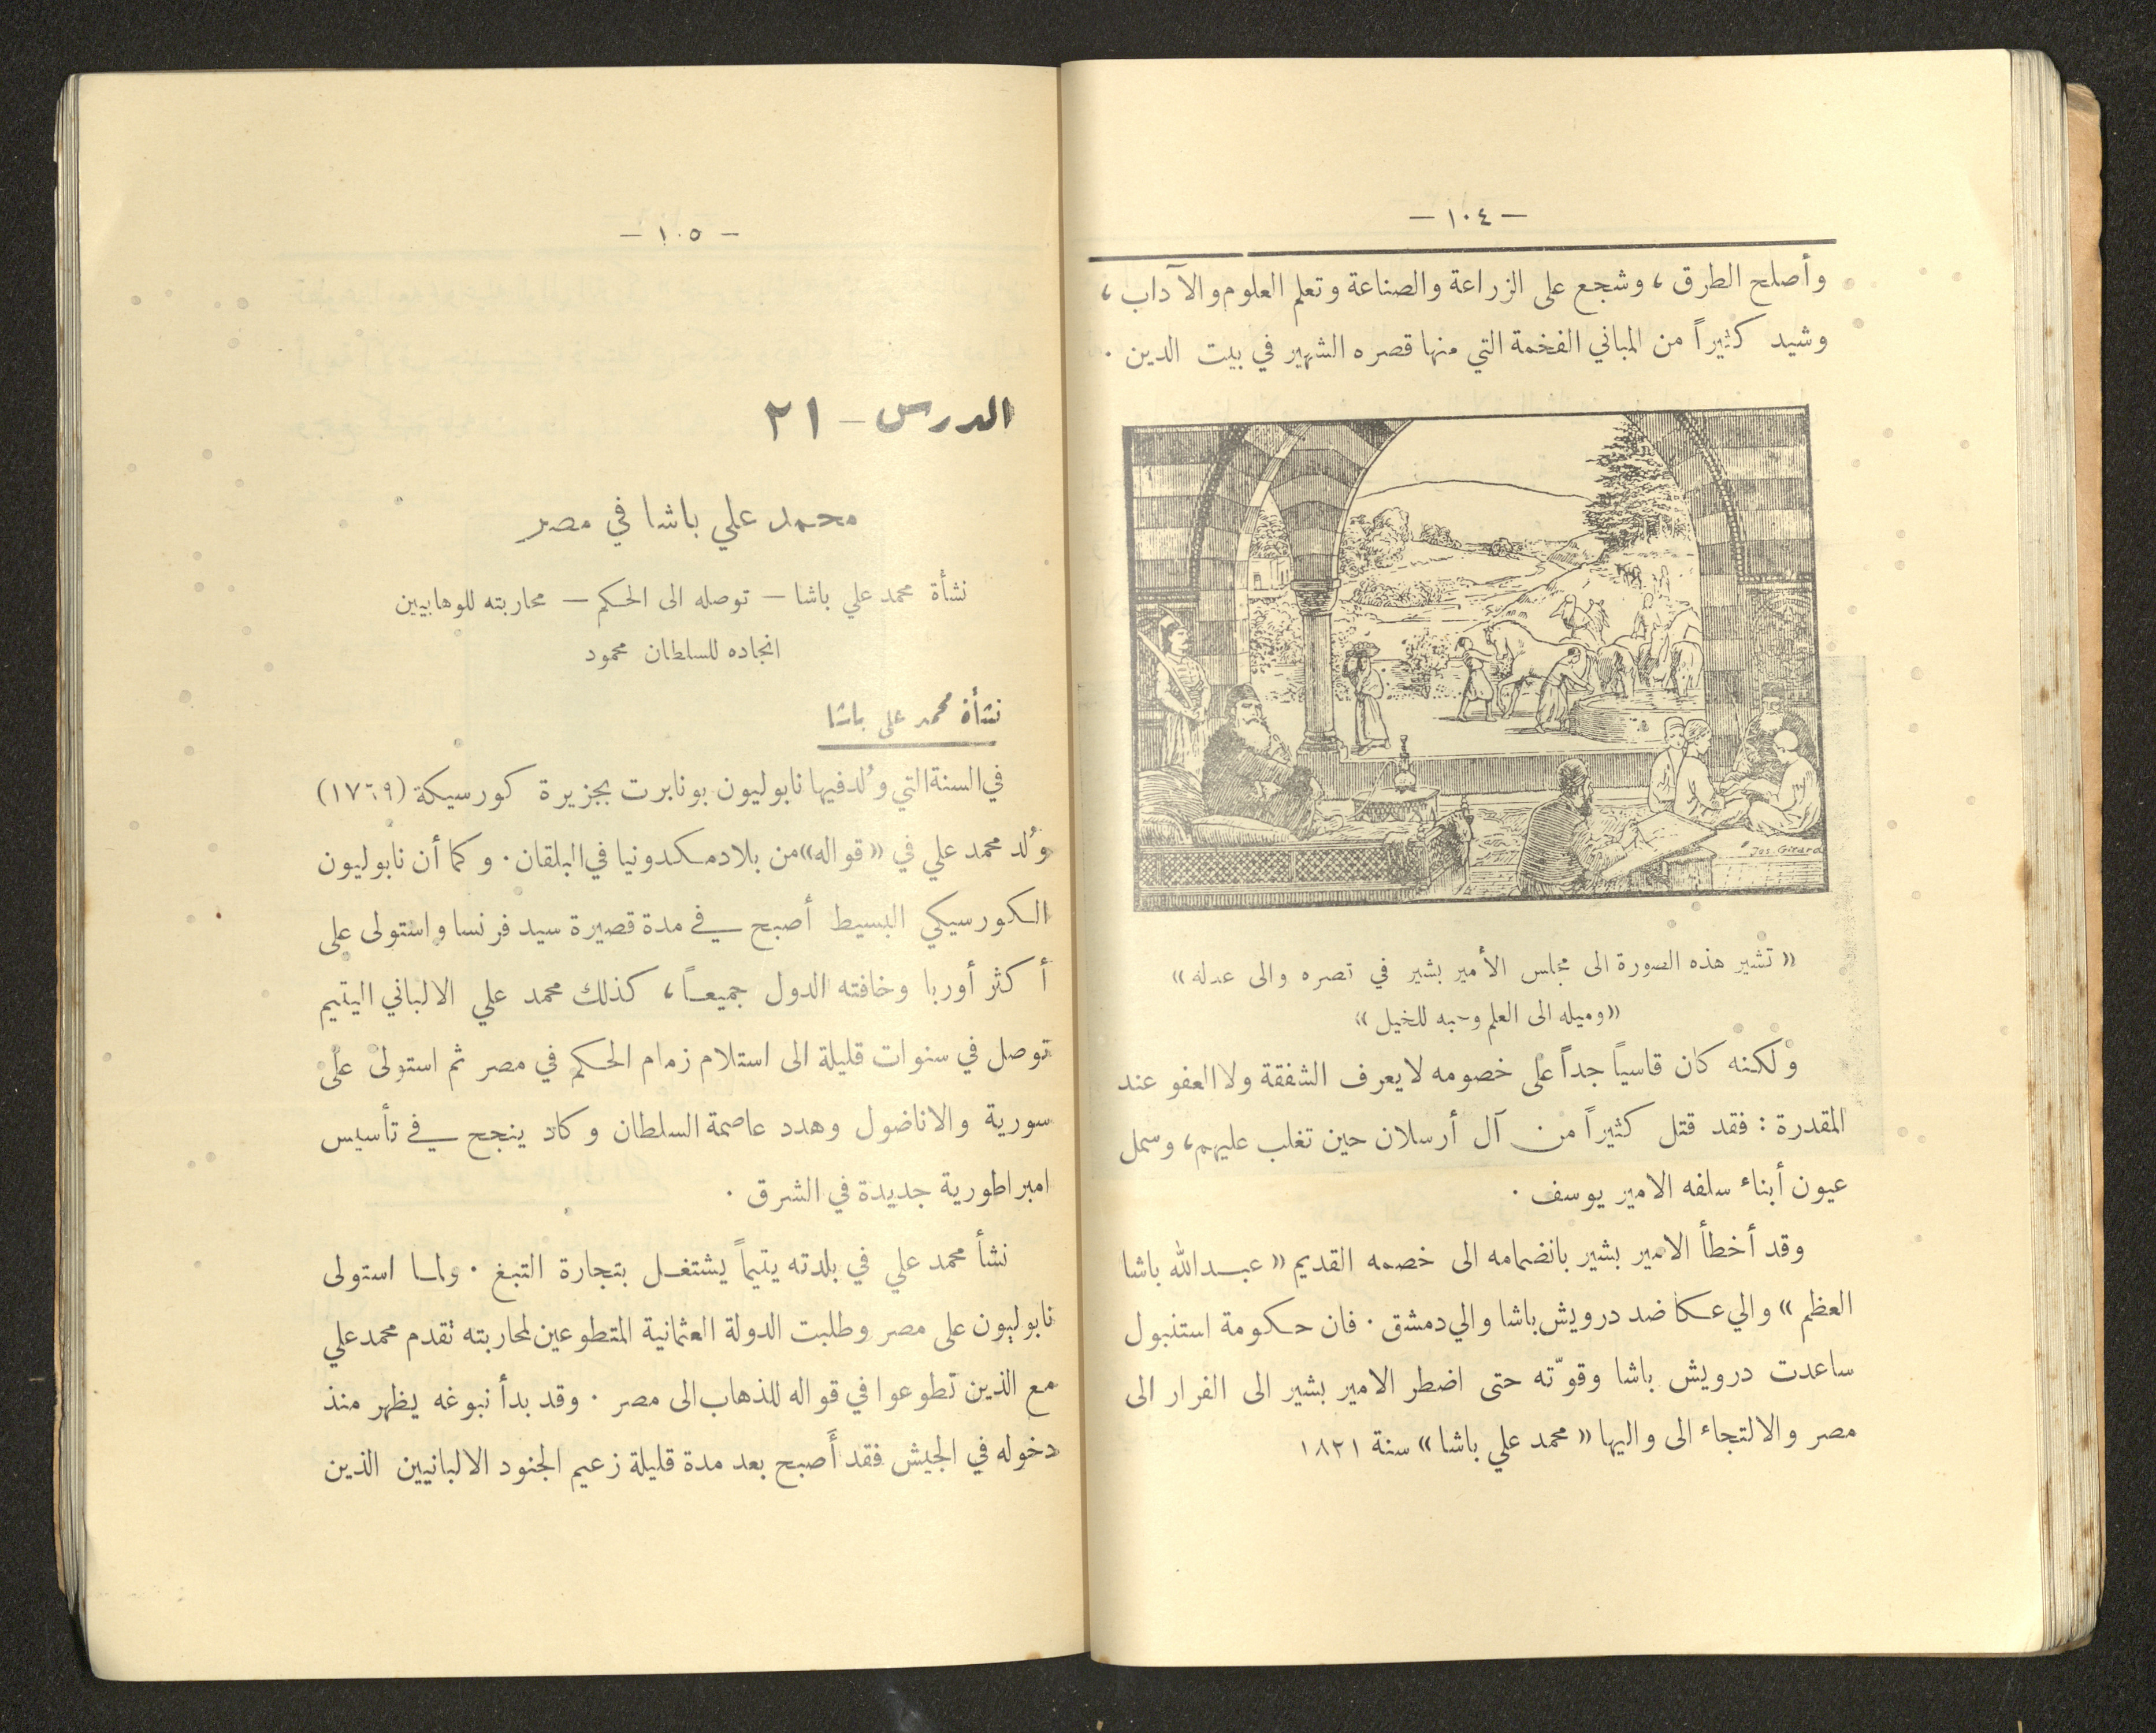 — ١٠٤ —
وأصلح الطرق ، وشجع على الزراعة والصناعة وتعلم العلوم والآداب ،
وشيد كثيراً من المباني الفخمة التي منها قصره الشهير في بيت الدين .
Jos. Girard
« تشير هذه الصورة الى مجلس الأمير بشير في قصره والى عدله »
« وميله الى العلم وحبه للخيل »
ولكنه كان قاسياً جداً على خصومه لا يعرف الشفقة ولا العفو عند
المقدرة : فقد قتل كثيراً من آل أرسلان حين تغلب عليهم ، وسمل
عيون أبناء سلفه الامير يوسف .
وقد أخطأ الامير بشير بانضمامه الى خصمه القديم « عبد الله باشا
العظم » والي عكا ضد درويش باشا والي دمشق . فان حكومة استنبول
ساعدت درويش باشا وقوّته حتى اضطر الامير بشير الى الفرار الى
مصر والالتجاء الى واليها « محمد علي باشا » سنة ١٨٢١
— ١٠٥ —
الدرس — ٢١
محمد علي باشا في مصر
نشأة محمد علي باشا — توصله الى الحكم — محاربته للوهابيين
انجاده للسلطان محمود
نشأة محمد علي باشا
في السنة التي وُلد فيها نابوليون بونابرت بجزيرة كورسيكة (١٧٦٩)
وُلد محمد علي في « قواله » من بلاد مكدونيا في البلقان . وكما أن نابوليون
الكورسيكي البسيط أصبح في مدة قصيرة سيد فرنسا واستولى على
أكثر أوربا وخافته الدول جميعاً ، كذلك محمد علي الالباني اليتيم
توصل في سنوات قليلة الى استلام زمام الحكم في مصر ثم استولى على
سورية والاناضول وهدد عاصمة السلطان وكاد ينجح في تأسيس
امبراطورية جديدة في الشرق .
نشأ محمد علي في بلدته يتيماً يشتغل بتجارة التبغ . ولما استولى
نابوليون على مصر وطلبت الدولة العثمانية المتطوعين لمحاربته تقدم محمد علي
مع الذين تطوعوا في قواله للذهاب الى مصر . وقد بدأ نبوغه يظهر منذ
دخوله في الجيش فقد أَصبح بعد مدة قليلة زعيم الجنود الالبانيين الذين